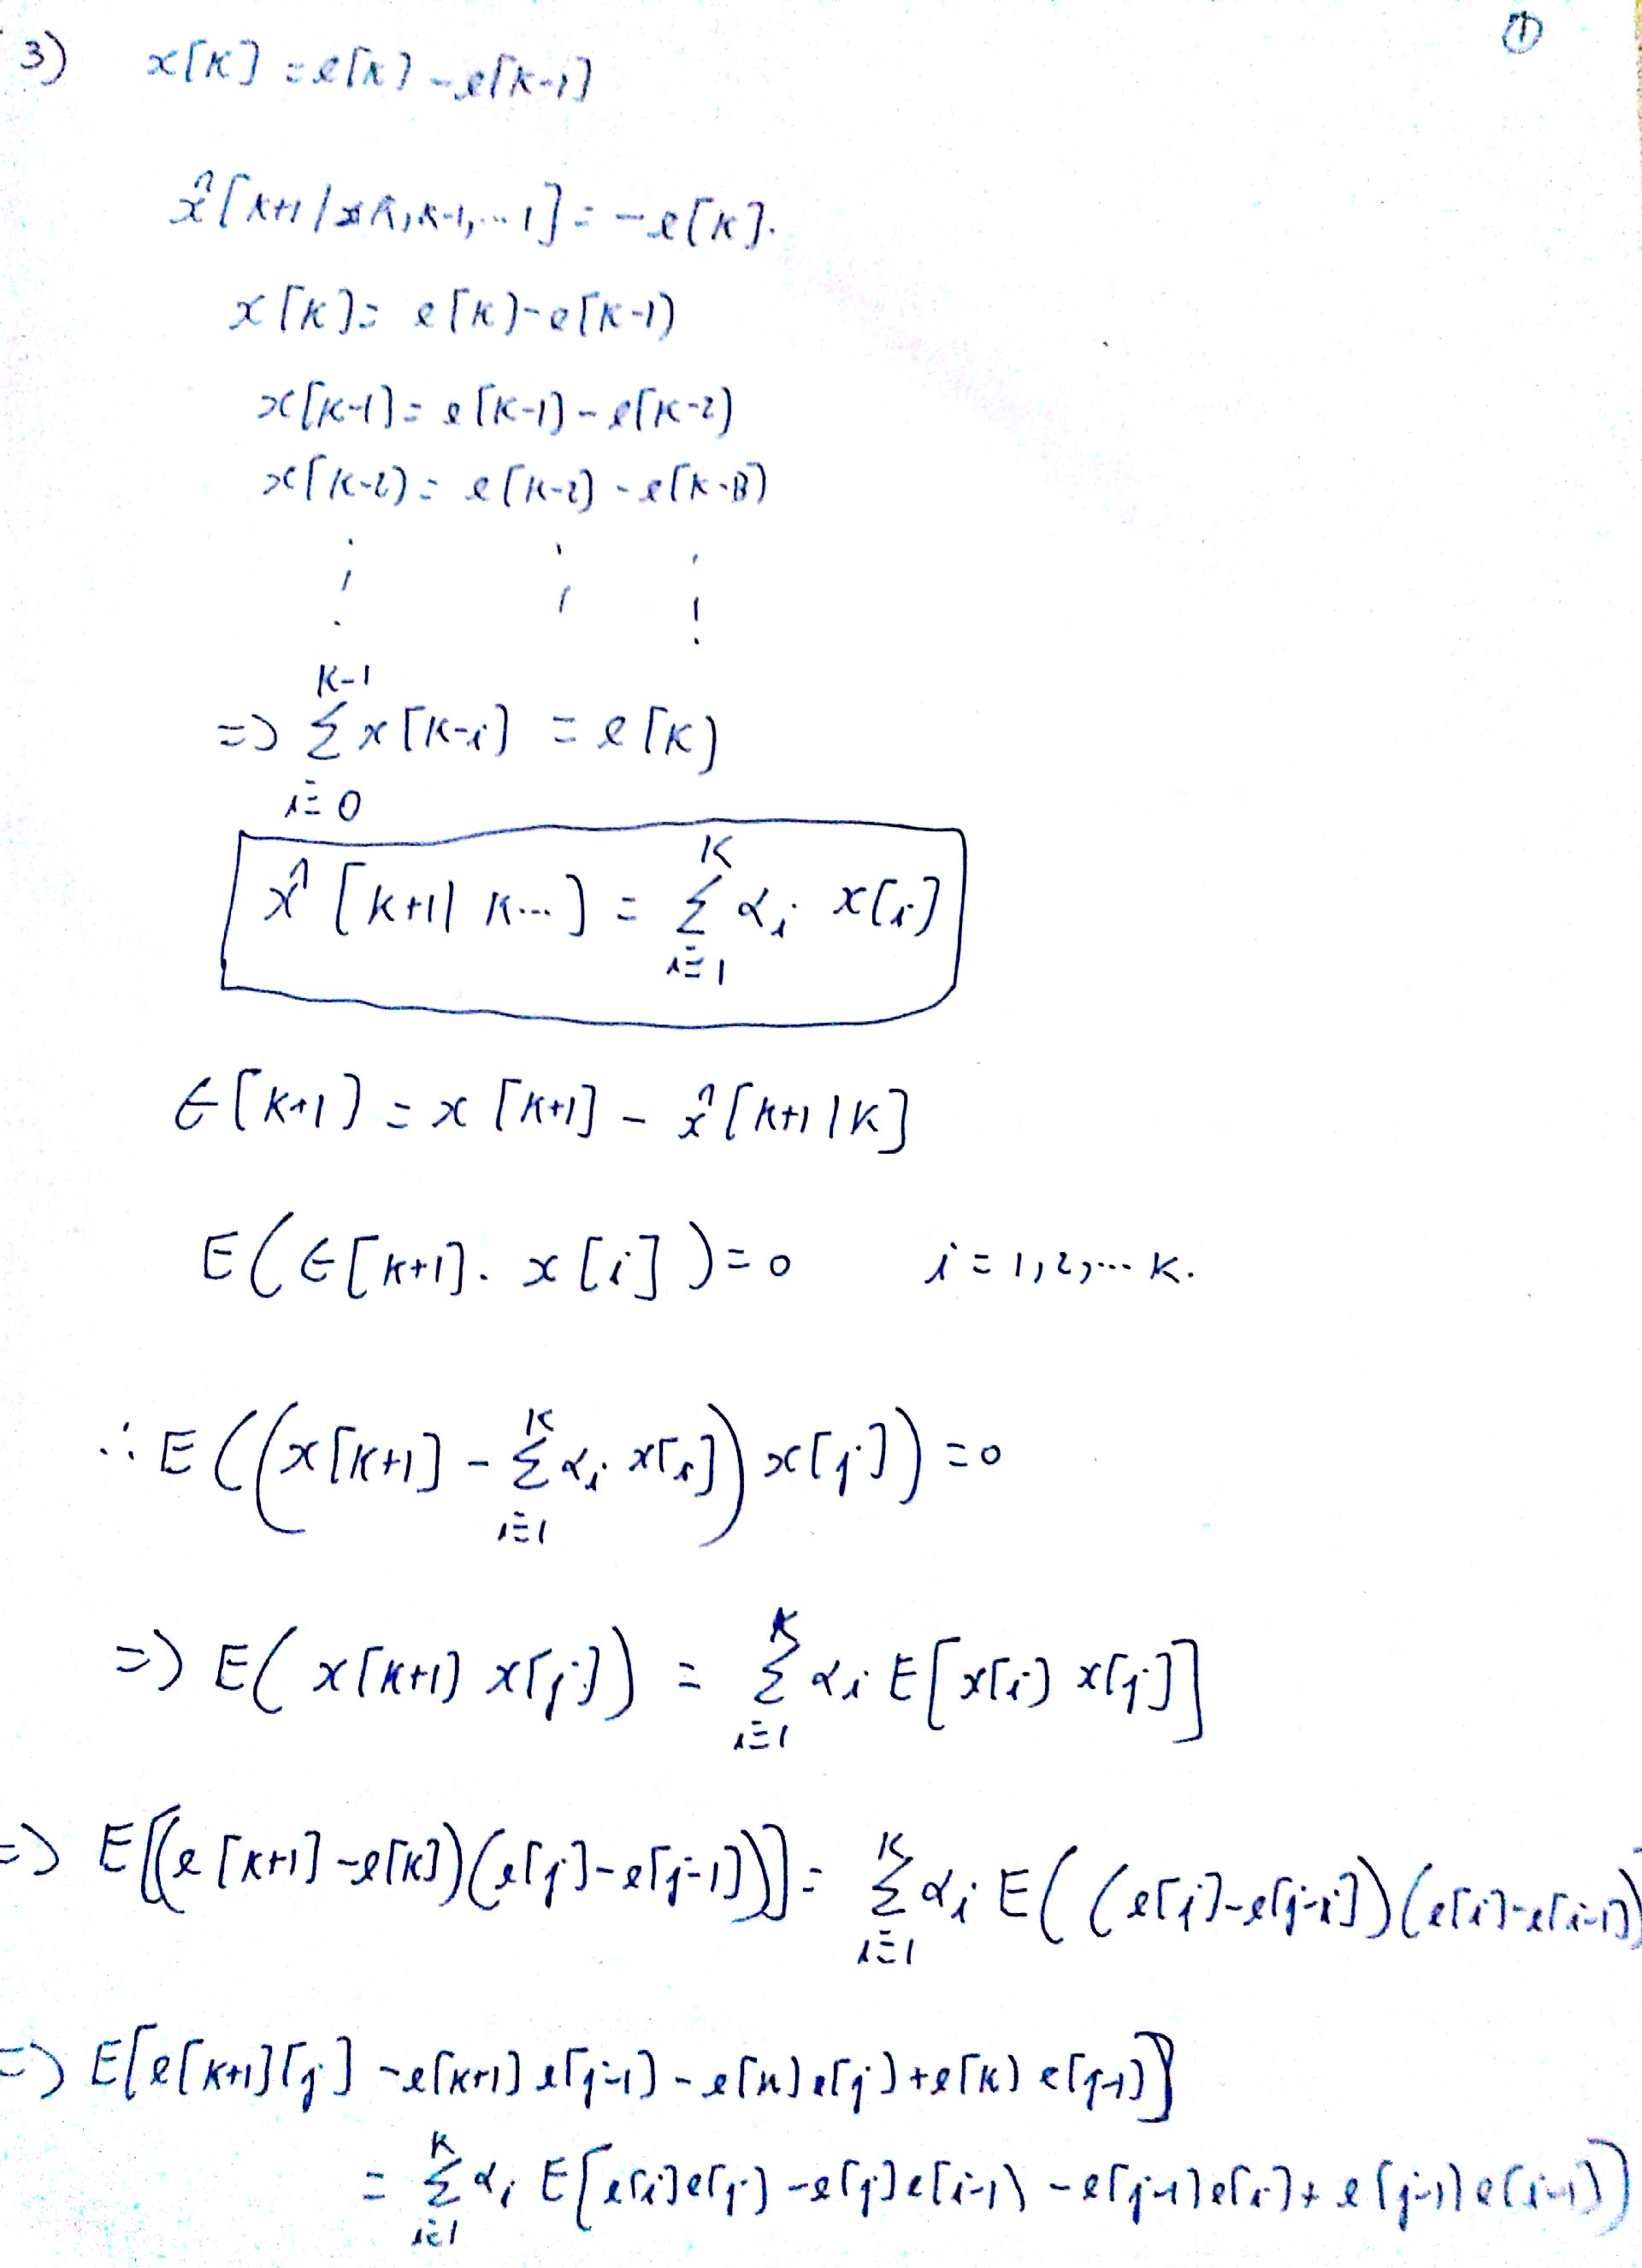 ①
3) x[K] = e[K] - e[K-1]
x̂[K+1/K,K-1,...1] = -e[K].
x[K] = e[K) - e[K-1)
x[K-1) = e[K-1) - e[K-2)
x[K-2) = e[K-2) - e[K-3)
=> Σ_{i=0}^{K-1} x[K-i] = e[K)
x̂[K+1| K...] = Σ_{i=1}^{K} αi x[i]
ϵ[K+1] = x[K+1] - x̂[K+1|K]
E(ϵ[K+1]. x[i]) = 0 i = 1,2,... K.
∴ E((x[K+1] - Σ_{i=1}^{K} αi x[i]) x[j]) = 0
=> E(x[K+1) x[j]) = Σ_{i=1}^{K} αi E[x[i) x[j]]
=> E[(e[K+1] - e[K])(e[j] - e[j-1])] = Σ_{i=1}^{K} αi E((e[j] - e[j-1])(e[i] - e[i-1])
=> E[e[K+1][j] - e[K+1) e[j-1) - e[K) e[j) + e[K) e[j-1)]
= Σ_{i=1}^{K} αi E[e[i]e[j) - e[j]e[i-1) - e[j-1]e[i) + e[j-1)e[i-1)]